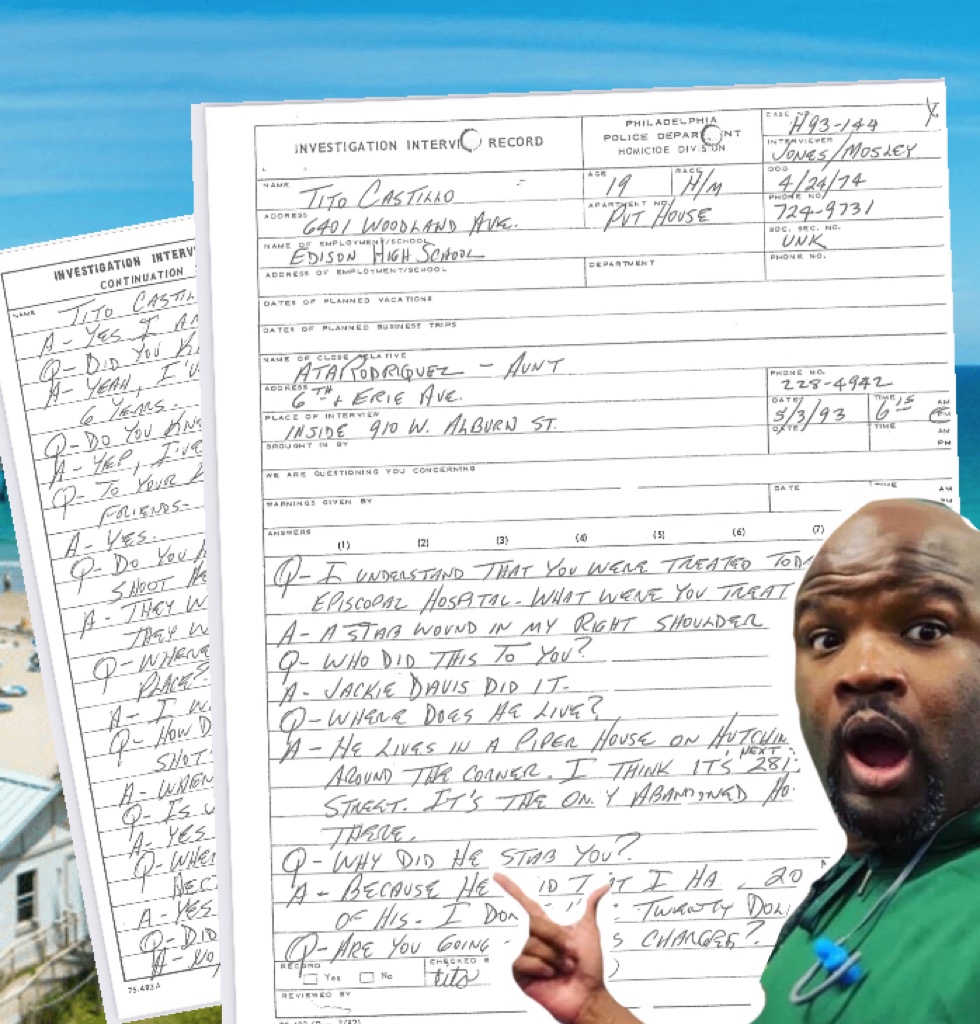 INVESTIGATION INTERV
CONTINUATION
NAME
TITO CASTIL
A - YES I AM
Q - DID YOU KN
A - YEAH, I'V
6 YEARS.
Q - DO YOU KNO
A - YEP, I'VE
Q - TO YOUR K
FRIENDS-
A - YES.
Q - DO YOU K
SHOOT HE
A - THEY W
THEY W
Q - WHERE
PLACE?
A - I W
Q - HOW D
SHOT
A - WHEN
Q - IS
A - YES
Q - WHEN
NECT
A - YES
Q - DID
A - NO
75-483A
INVESTIGATION INTERVI RECORD
PHILADELPHIA
POLICE DEPAR NT
HOMICIDE DIVISION
CASE
H93-144
INTERVIEWER
JONES/MOSLEY
NAME
TITO CASTILLO
AGE
19
RACE
H/M
DOB
4/24/74
ADDRESS
6401 WOODLAND AVE.
APARTMENT NO.
PVT HOUSE
PHONE NO.
724-9731
NAME OF EMPLOYMENT/SCHOOL
EDISON HIGH SCHOOL
SOC. SEC. NO.
UNK
ADDRESS OF EMPLOYMENT/SCHOOL
DEPARTMENT
PHONE NO.
DATES OF PLANNED VACATIONS
DATES OF PLANNED BUSINESS TRIPS
NAME OF CLOSE RELATIVE
ATA RODRIQUEZ - AUNT
ADDRESS
6TH + ERIE AVE.
PHONE NO.
228-4942
PLACE OF INTERVIEW
INSIDE 910 W. ALBURN ST.
DATE
5/3/93
TIME
6 15
AM
PM
BROUGHT IN BY
DATE
TIME
AM
PM
WE ARE QUESTIONING YOU CONCERNING
WARNINGS GIVEN BY
DATE
TIME
AM
ANSWERS
(1) (2) (3) (4) (5) (6) (7)
Q - I UNDERSTAND THAT YOU WERE TREATED TODA
EPISCOPAL HOSPITAL. WHAT WERE YOU TREAT
A - A STAB WOUND IN MY RIGHT SHOULDER
Q - WHO DID THIS TO YOU?
A - JACKIE DAVIS DID IT.
Q - WHERE DOES HE LIVE?
A - HE LIVES IN A PIPER HOUSE ON HUTCHIN
NEXT
AROUND THE CORNER. I THINK IT'S 281
STREET. IT'S THE ON Y ABANDONED HO
THERE.
Q - WHY DID HE STAB YOU?
A - BECAUSE HE ID T T I HA 20
OF HIS. I DON TWENTY DOLL
Q - ARE YOU GOING S CHARGES?
RECORD
Yes No
CHECKED B
tito
REVIEWED BY